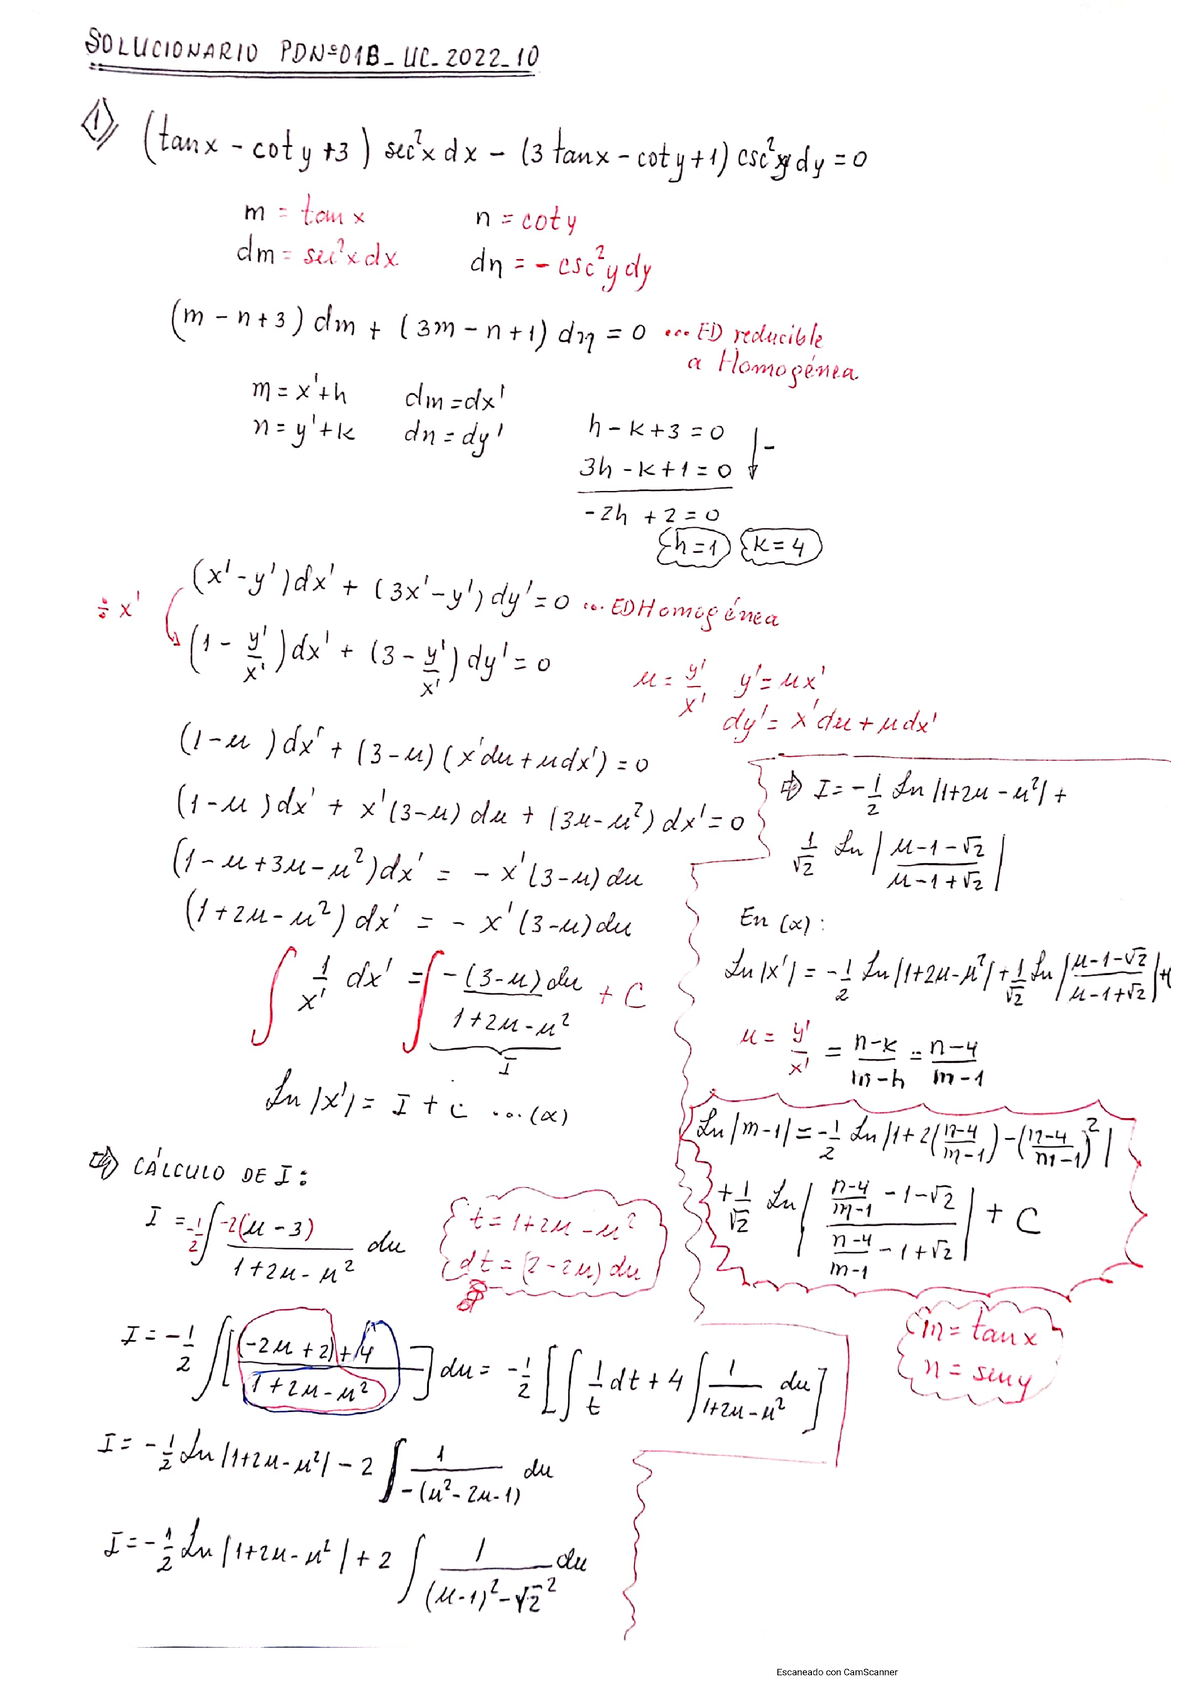 SOLUCIONARIO PDNº01B_UC_2022_10
1) (tanx - coty +3) sec²x dx - (3 tanx - coty +1) csc²y dy = 0
m = tan x    n = cot y
dm = sec²x dx    dη = - csc²y dy
(m - n + 3) dm + (3m - n + 1) dη = 0 ... ED reducible
a Homogénea
m = x'+h    dm = dx'
n = y'+k    dn = dy'
h - k + 3 = 0
3h - k + 1 = 0 ↓ -
-2h + 2 = 0
h = 1    k = 4
(x' - y')dx' + (3x' - y') dy' = 0 ... ED Homogénea
÷ x'
(1 - y'/x')dx' + (3 - y'/x') dy' = 0
μ = y'/x'    y' = μx'
dy' = x'dμ + μdx'
(1-μ)dx' + (3-μ)(x'dμ + μdx') = 0
(1-μ)dx' + x'(3-μ) dμ + (3μ-μ²) dx' = 0
(1-μ+3μ-μ²)dx' = - x'(3-μ) dμ
(1+2μ-μ²) dx' = - x'(3-μ)dμ
∫ 1/x' dx' = ∫ -(3-μ)dμ / 1+2μ-μ² + C
I
Ln |x'| = I + C ... (α)
⇒ CÁLCULO DE I:
I = -1/2 ∫ -2(μ-3) / 1+2μ-μ² dμ
t = 1+2μ-μ²
dt = (2-2μ) dμ
I = -1/2 ∫[(-2μ+2)+4 / 1+2μ-μ²] dμ = -1/2 [∫ 1/t dt + 4 ∫ 1/1+2μ-μ² dμ]
I = -1/2 Ln |1+2μ-μ²| - 2 ∫ 1/-(μ²-2μ-1) dμ
I = -1/2 Ln |1+2μ-μ²| + 2 ∫ 1/(μ-1)²-√2² dμ
⇒ I = -1/2 Ln |1+2μ-μ²| +
1/√2 Ln |μ-1-√2 / μ-1+√2|
En (α):
Ln |x'| = -1/2 Ln |1+2μ-μ²| + 1/√2 Ln |μ-1-√2 / μ-1+√2| +
μ = y'/x' = n-k/m-h = n-4/m-1
Ln |m-1| = -1/2 Ln |1+2(n-4/m-1) - (n-4/m-1)²|
+ 1/√2 Ln |n-4/m-1 - 1 - √2 / n-4/m-1 - 1 + √2| + C
m = tan x
n = sin y
Escaneado con CamScanner